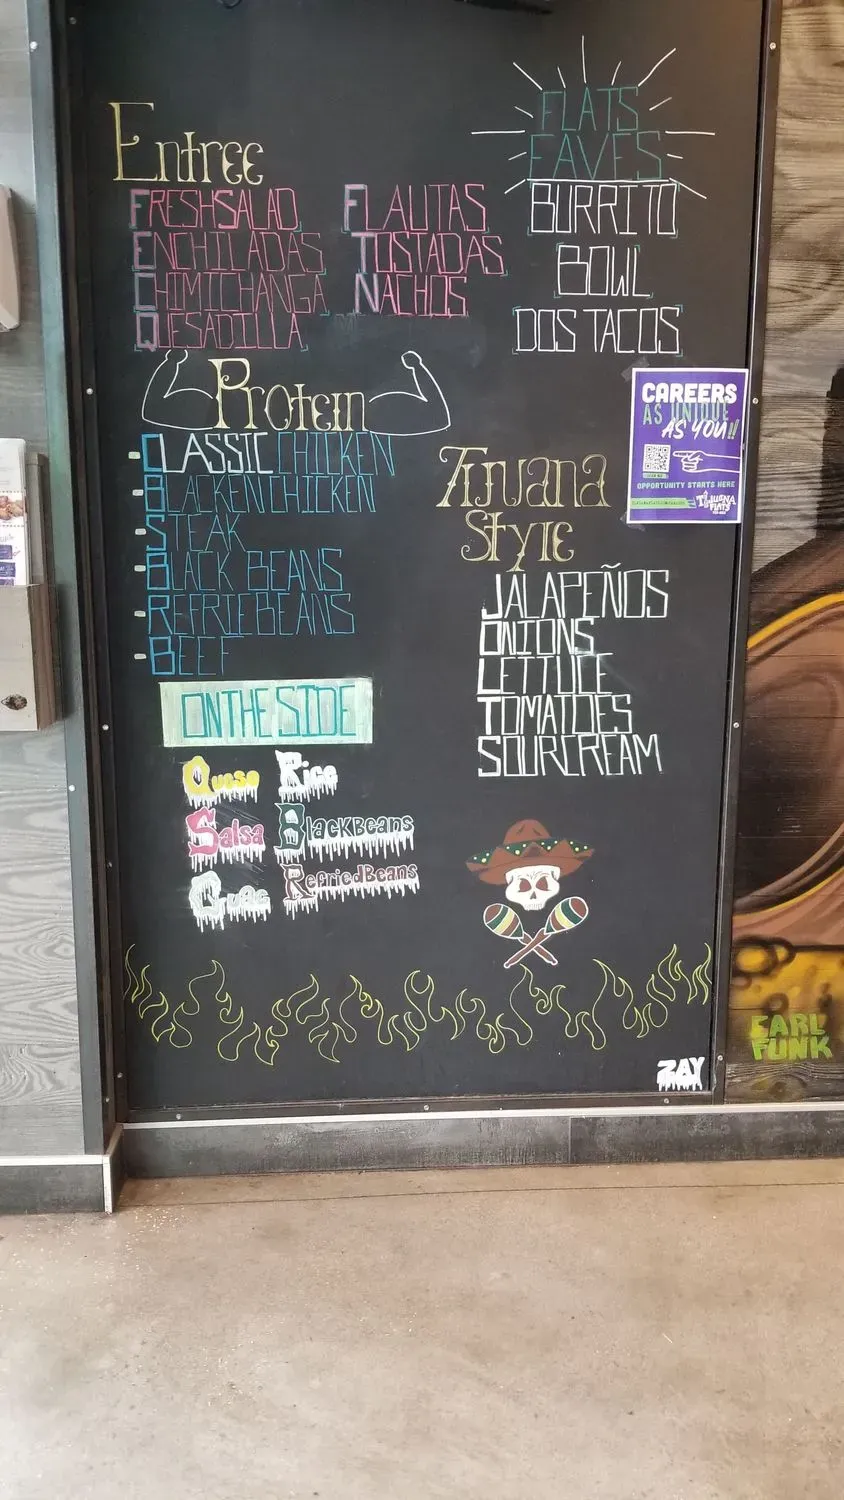 Entree
FRESH SALAD
ENCHILADAS
CHIMICHANGA
QUESADILLA
FLAUTAS
TOSTADAS
NACHOS
FLATS
FAVES
BURRITO
BOWL
DOS TACOS
Protein
CLASSIC CHICKEN
BLACKEN CHICKEN
STEAK
BLACK BEANS
REFRIEBEANS
BEEF
CAREERS
AS UNIQUE
AS YOU!!
OPPORTUNITY STARTS HERE
TIJUANA
FLATS
Tijuana
Style
JALAPEÑOS
ONIONS
LETTUCE
TOMATOES
SOURCREAM
ON THE SIDE
Queso
Rice
Salsa
BlackBeans
Guac
RefriedBeans
ZAY
EARL
FUNK